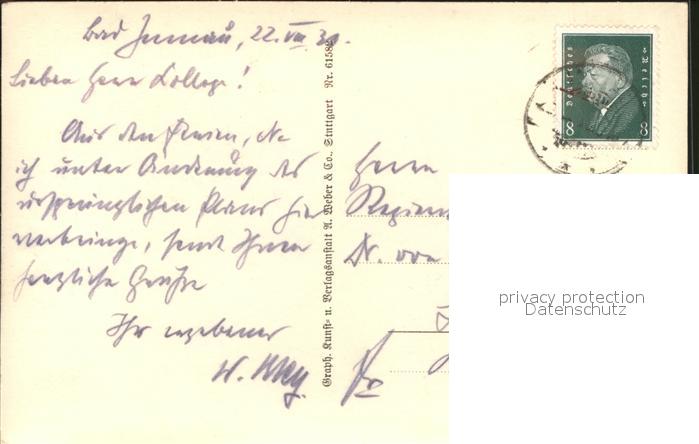 Bad Imnau, 22. VIII. 30.
Lieben Herr Kollege!
Aus den Ferien, die
ich unter Änderung des
ursprünglichen Planes hier
verbringe, sendet Ihnen
herzliche Grüße
Ihr ergebener
W.
Graph. Kunst- u. Verlagsanstalt A. Weber & Co., Stuttgart Nr. 6158
Deutsches Reich
8 8
Herrn
Regierun
Dr. von
privacy protection
Datenschutz